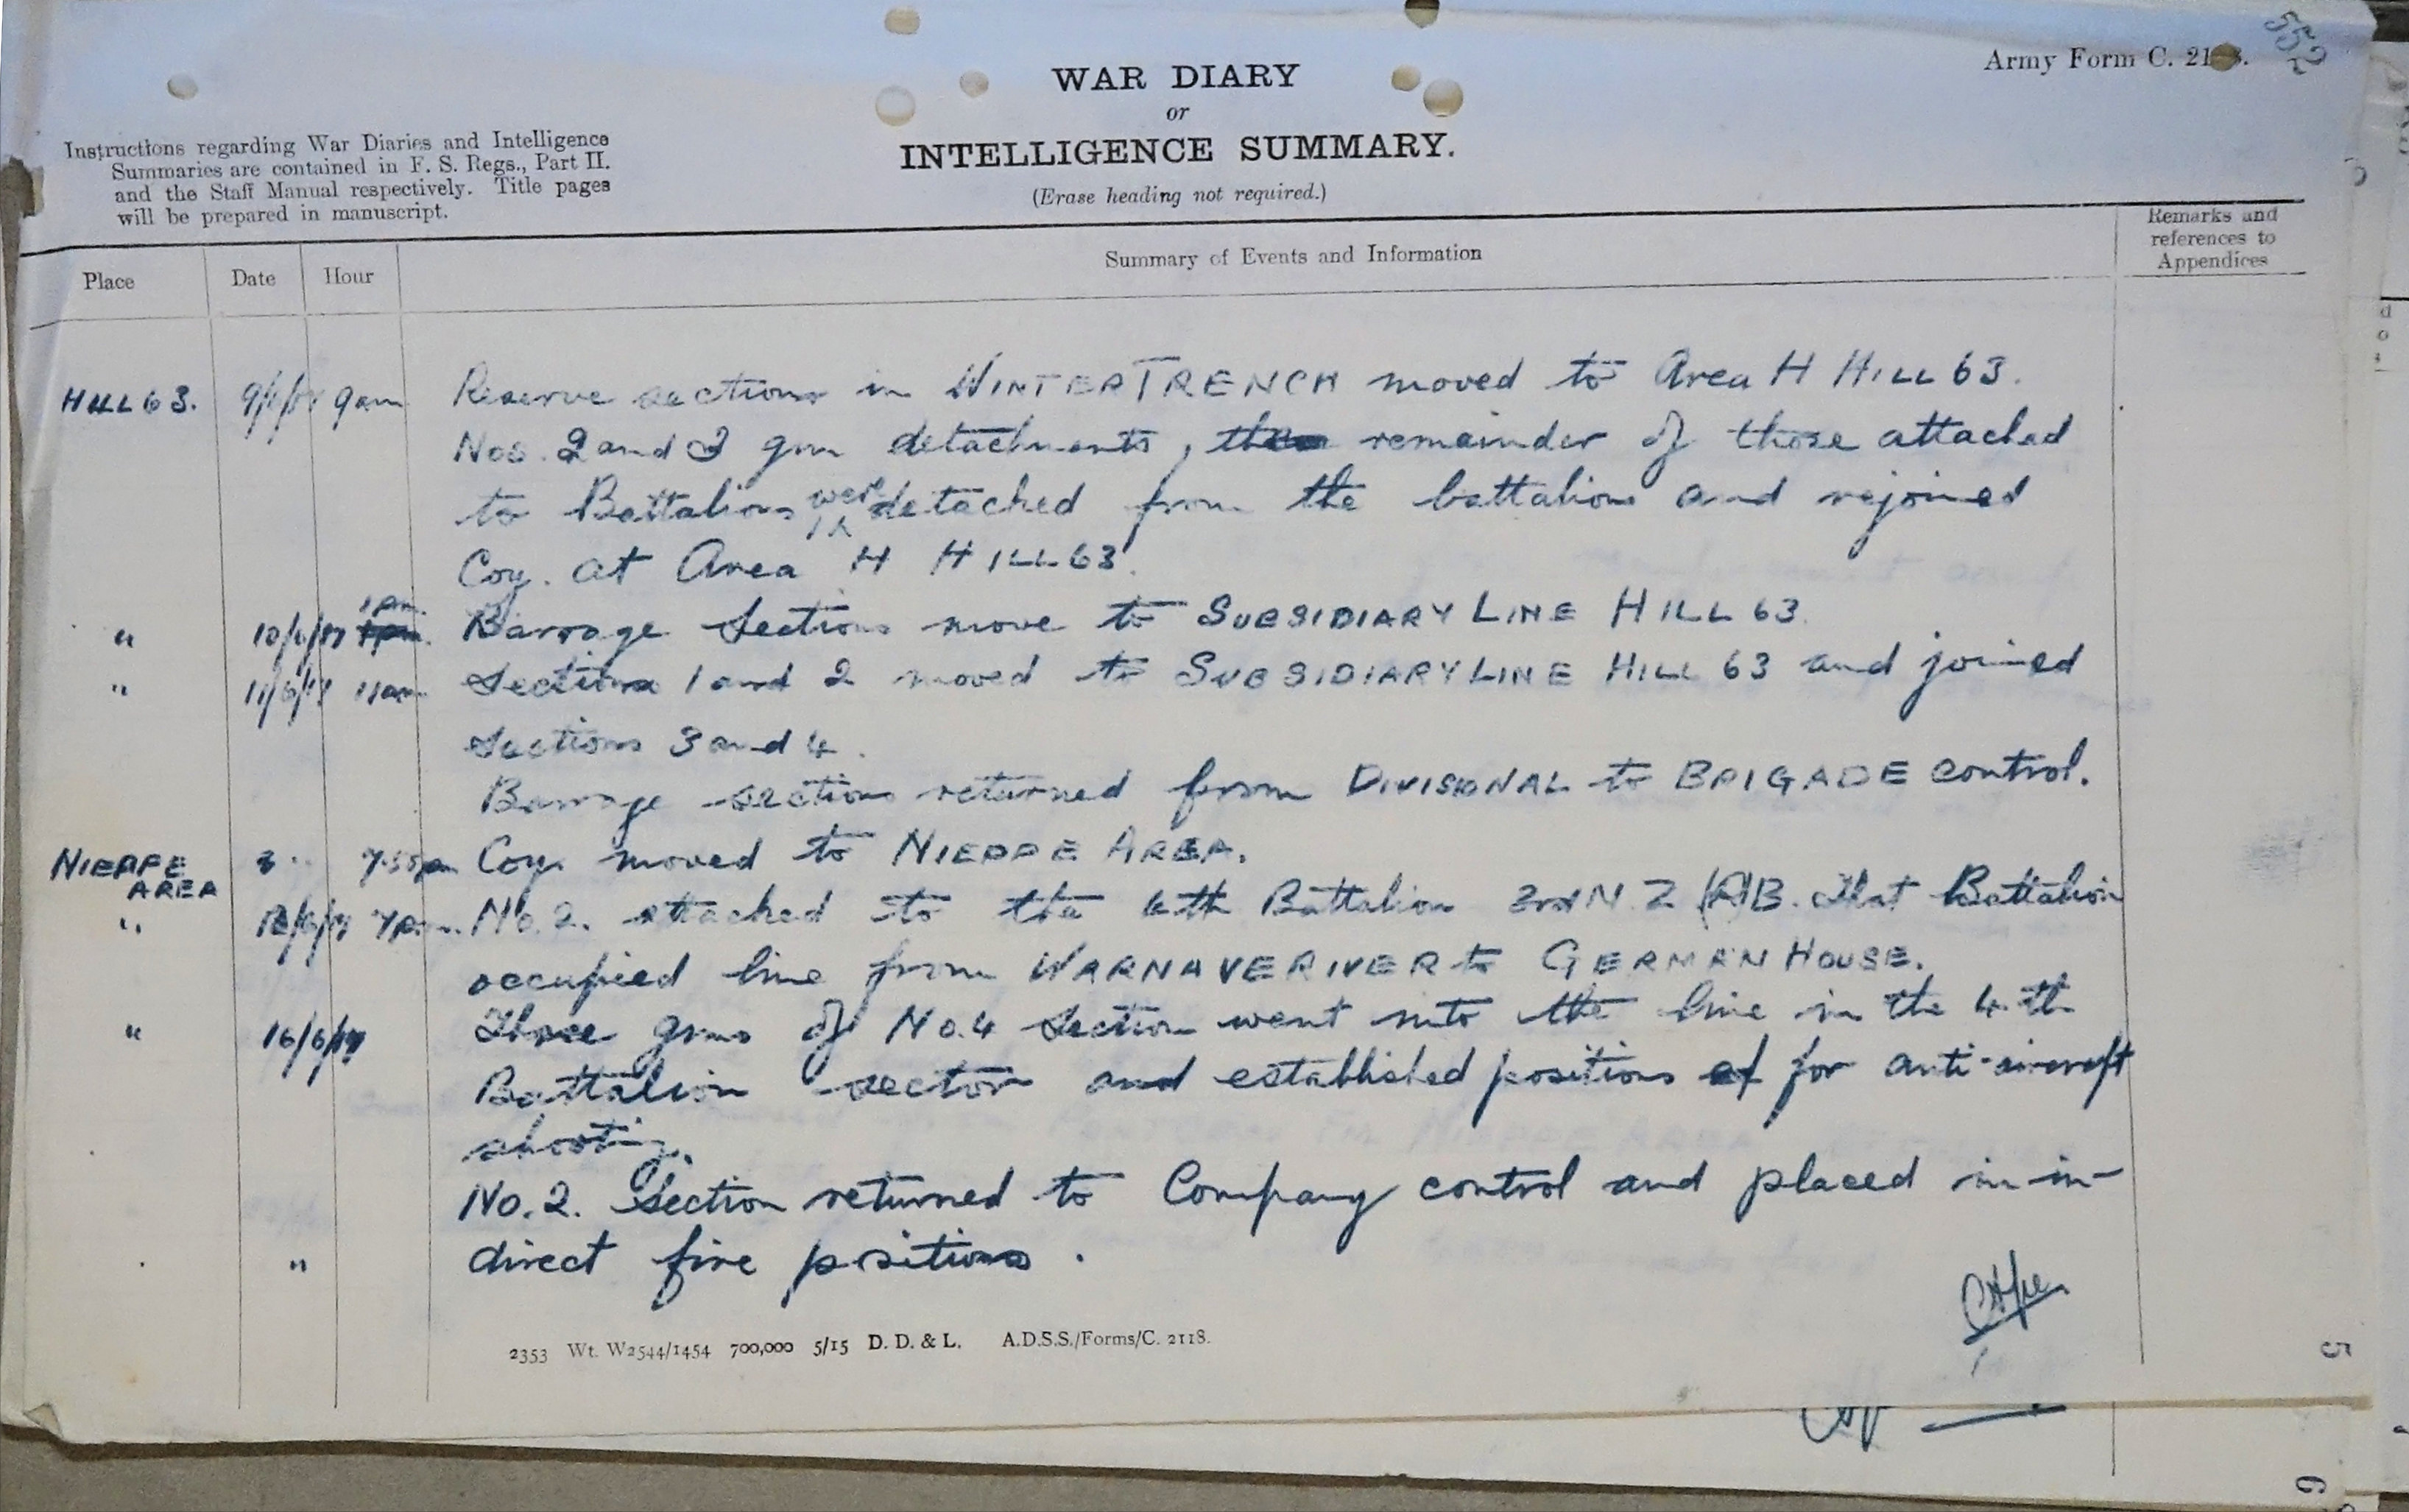 552
Army Form C. 21
WAR DIARY
or
INTELLIGENCE SUMMARY.
(Erase heading not required.)
Instructions regarding War Diaries and Intelligence
Summaries are contained in F. S. Regs., Part II.
and the Staff Manual respectively. Title pages
will be prepared in manuscript.
Place Date Hour Summary of Events and Information Remarks and
references to
Appendices
HILL 63. 9/6/17 9am Reserve sections in WINTER TRENCH moved to Area H HILL 63.
Nos. 2 and 3 gun detachments, remainder of those attached
to Battalions were detached from the battalions and rejoined
Coy. at Area H HILL 63.
" 10/6/17 1pm. Barrage Sections move to SUBSIDIARY LINE HILL 63.
" 11/6/17 11am Sections 1 and 2 moved to SUBSIDIARY LINE HILL 63 and joined
Sections 3 and 4.
Barrage sections returned from DIVISIONAL to BRIGADE control.
NIEPPE
AREA 7.30pm Coy. moved to NIEPPE AREA.
" /6/17 7pm. No. 2. attached to the 4th Battalion 3rd N.Z (R)B. That Battalion
occupied line from WARNAVE RIVER to GERMAN HOUSE.
" 16/6/17 Three guns of No. 4 Section went into the line in the 4th
Battalion sector and established positions of for anti-aircraft
shooting.
No. 2. Section returned to Company control and placed in in-
" direct fire positions.
2353 Wt. W2544/1454 700,000 5/15 D. D. & L. A.D.S.S./Forms/C. 2118.